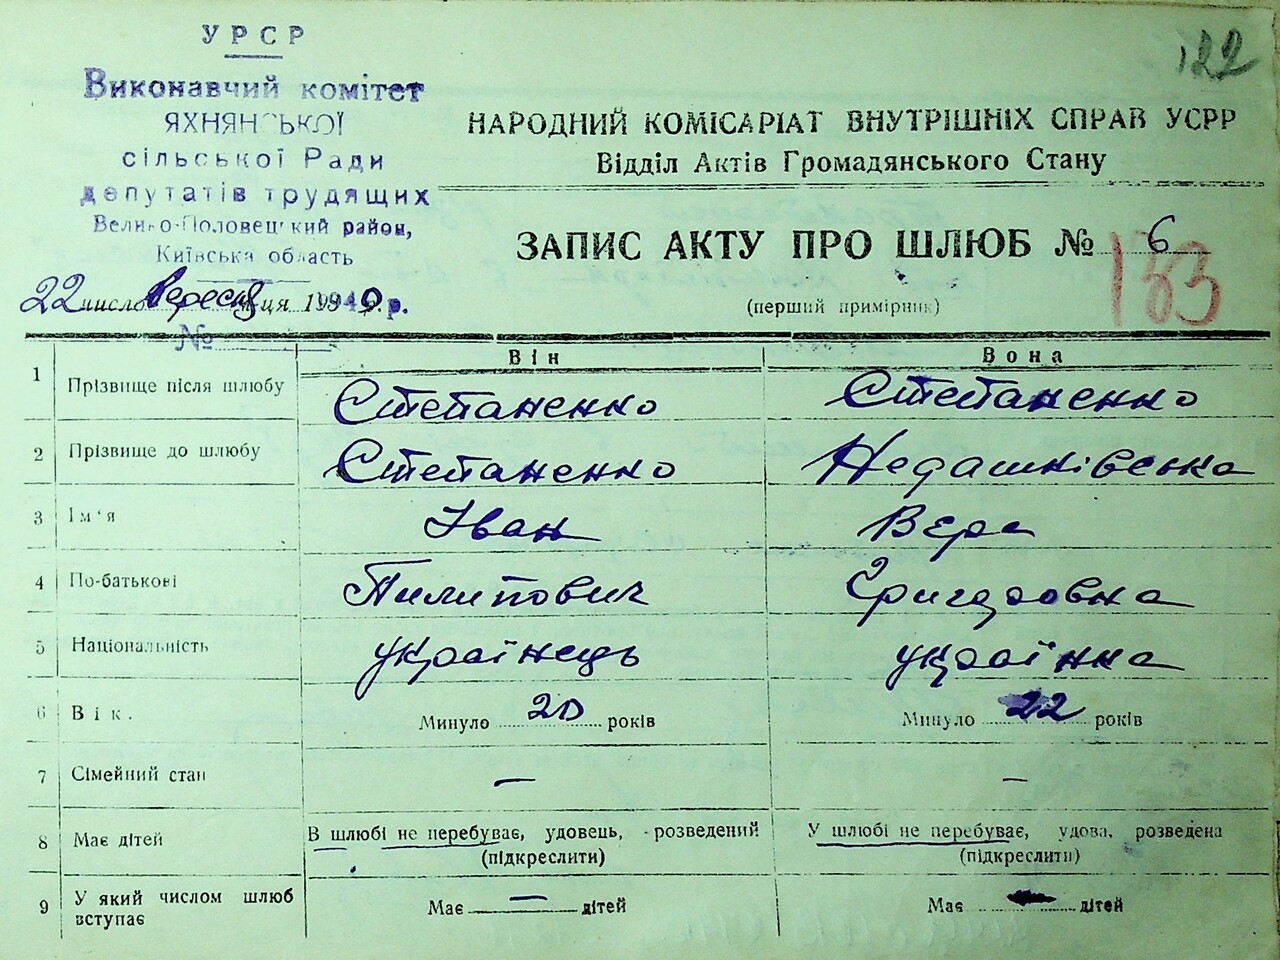 122
УРСР
Виконавчий комітет
ЯХНЯНСЬКОЇ
сільської Ради
депутатів трудящих
Велико-Половецький район,
Київська область
22 число вересня місяця 1940 р.
№
НАРОДНИЙ КОМІСАРІАТ ВНУТРІШНІХ СПРАВ УСРР
Відділ Актів Громадянського Стану
ЗАПИС АКТУ ПРО ШЛЮБ № 6
133
(перший примірник)
Він Вона
1 Прізвище після шлюбу Степаненко Степаненко
2 Прізвище до шлюбу Степаненко Недашківська
3 Ім'я Іван Вера
4 По-батькові Пилипович Григоровна
5 Національність українець українка
6 Вік. Минуло 20 років Минуло 22 років
7 Сімейний стан — —
8 Має дітей В шлюбі не перебуває, удовець, розведений У шлюбі не перебуває, удова, розведена
(підкреслити) (підкреслити)
9 У який числом шлюб вступає Має — дітей Має дітей